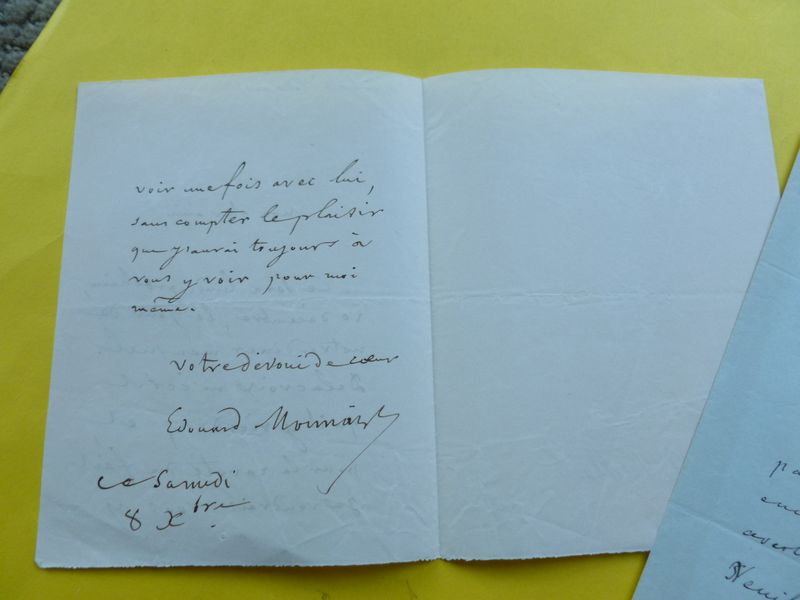 voir une fois avec lui,
sans compter le plaisir
que j'aurai toujours à
vous y voir pour moi
même.
votre dévoué de cœur
Edouard
ce Samedi
8 Xbre.
pa
enc
avert
Neuil